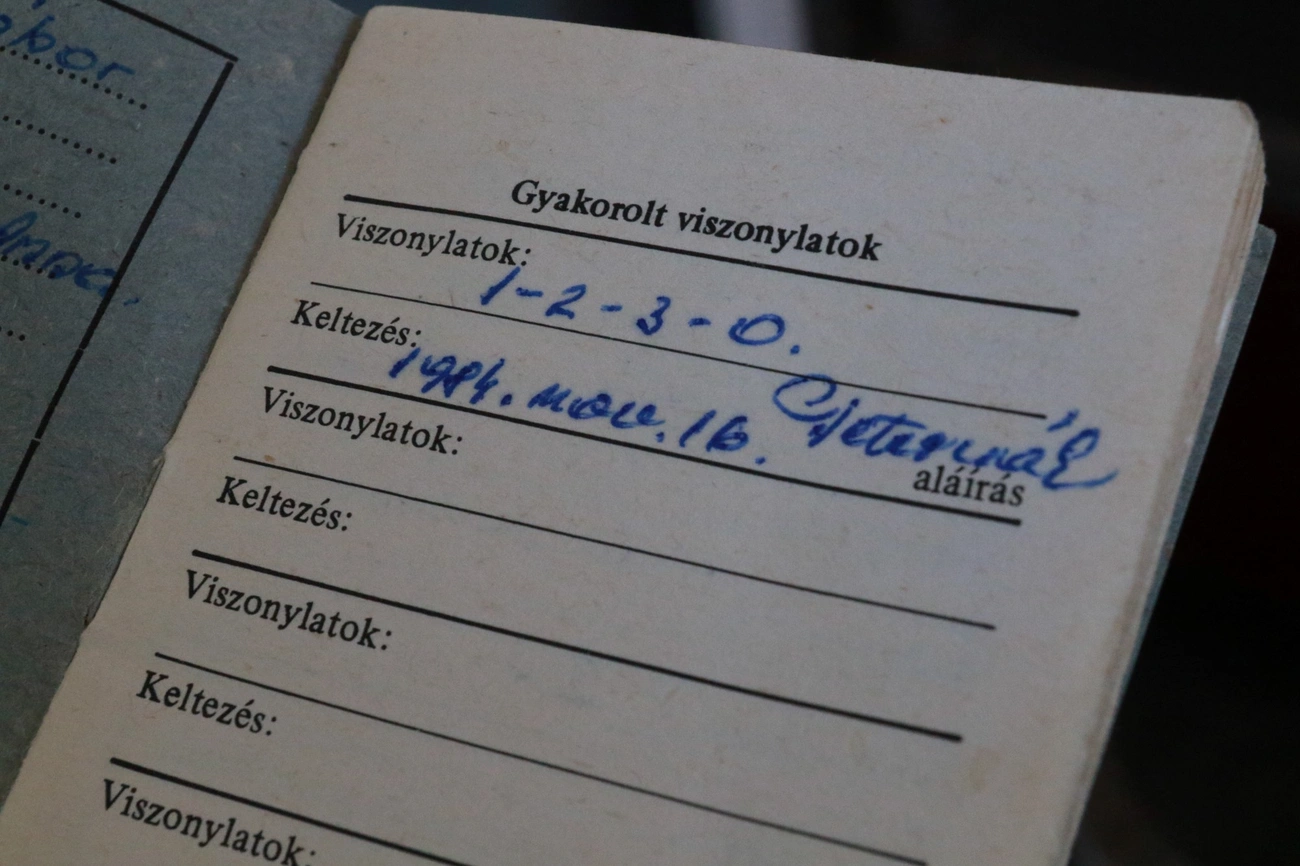 Gyakorolt viszonylatok
Viszonylatok:
1-2-3-0.
Keltezés:
1984. nov. 16.
aláírás
Viszonylatok:
Keltezés:
Viszonylatok:
Keltezés:
Viszonylatok: